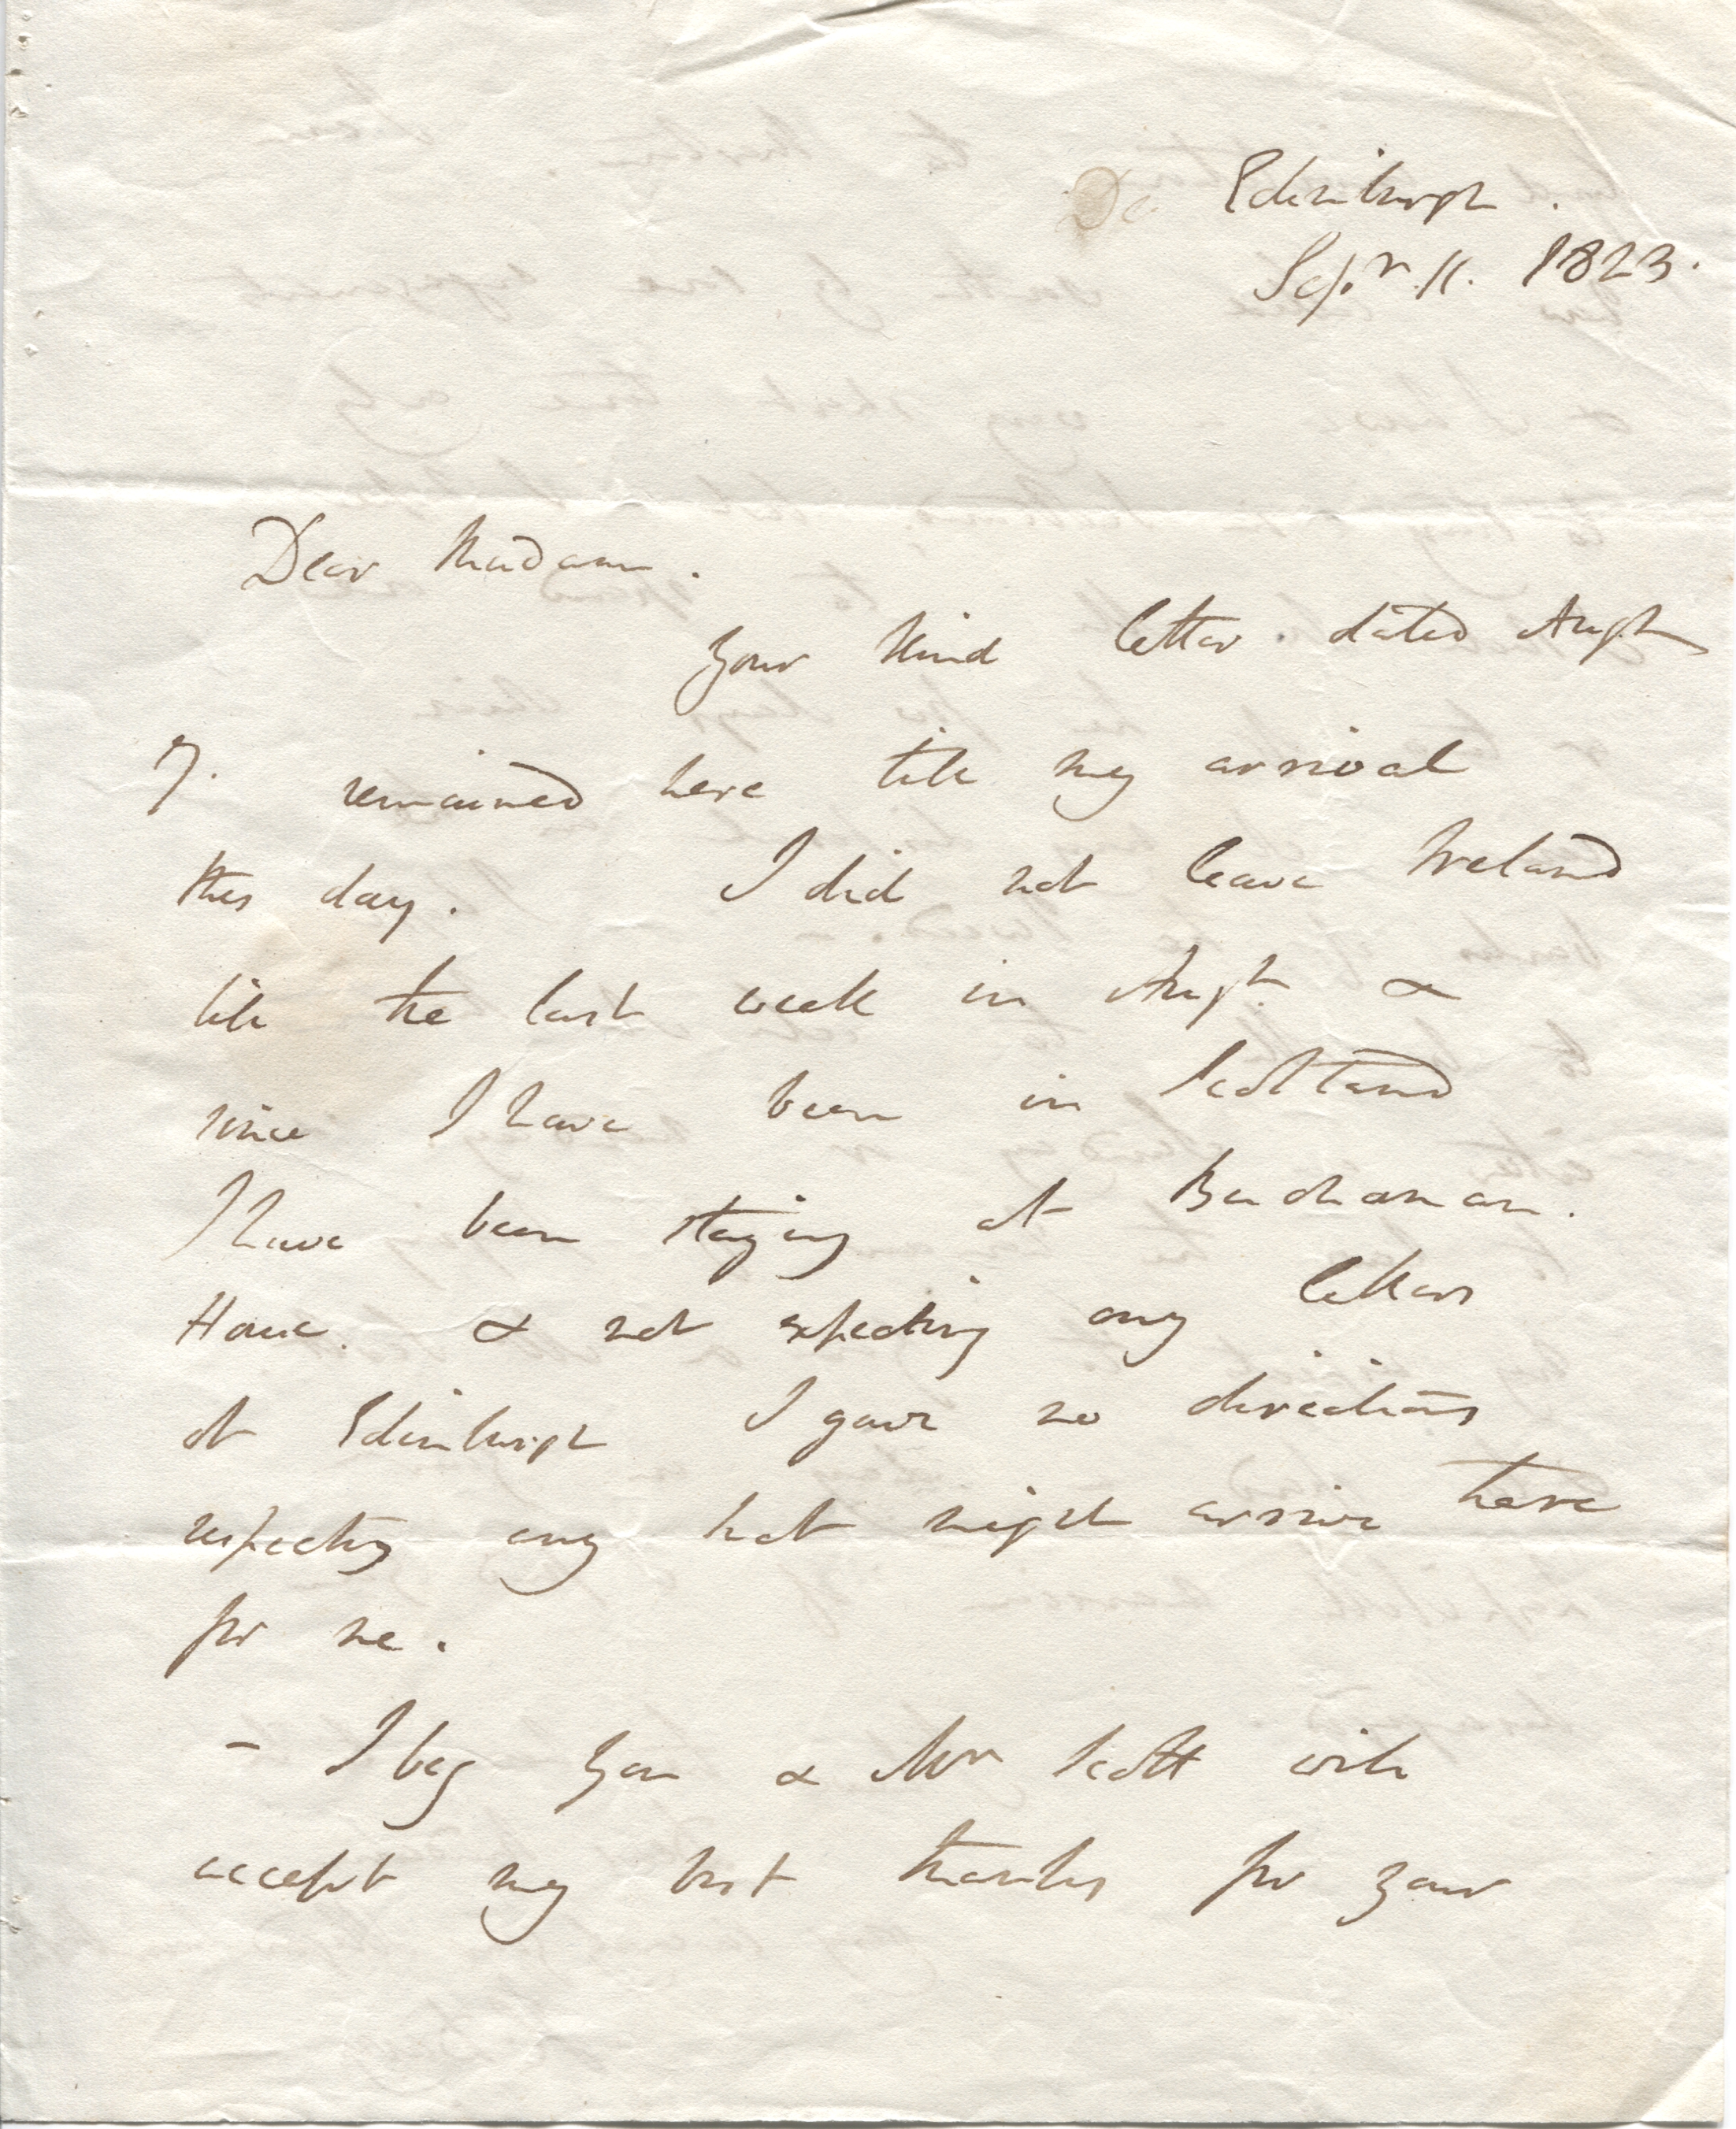 De Edinburgh.
Sepr. 11. 1823.
Dear Madam.
Your kind letter dated Augt
7. remained here till my arrival
this day. I did not leave Ireland
till the last week in Augt. &
since I have been in Scotland
I have been staying at Buchanan.
House. & not expecting any letters
at Edinburgh I gave no directions
respecting any that might arrive here
for me.
- I beg you & Mr Scott will
accept my best thanks for your